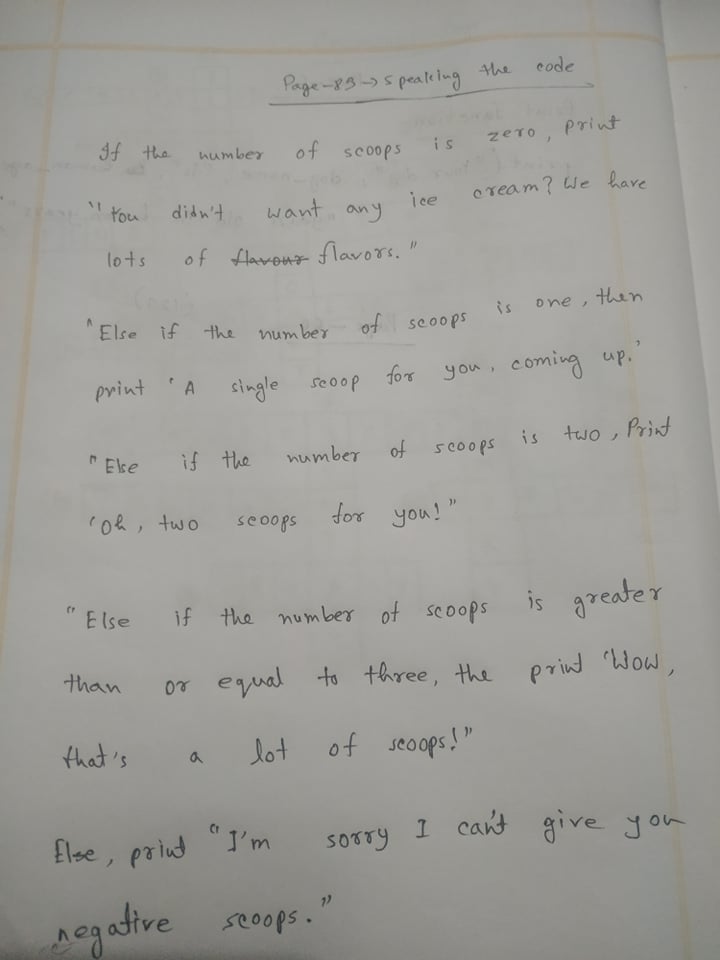 Page-83 → Speaking the code
If the number of scoops is zero, print
"You didn't want any ice cream? We have
lots of flavour flavors."
"Else if the number of scoops is one, then
print 'A single scoop for you, coming up.'
"Else if the number of scoops is two, Print
'Oh, two scoops for you!"
"Else if the number of scoops is greater
than or equal to three, the print 'Wow,
that's a lot of scoops!"
Else, print "I'm sorry I can't give you
negative scoops."